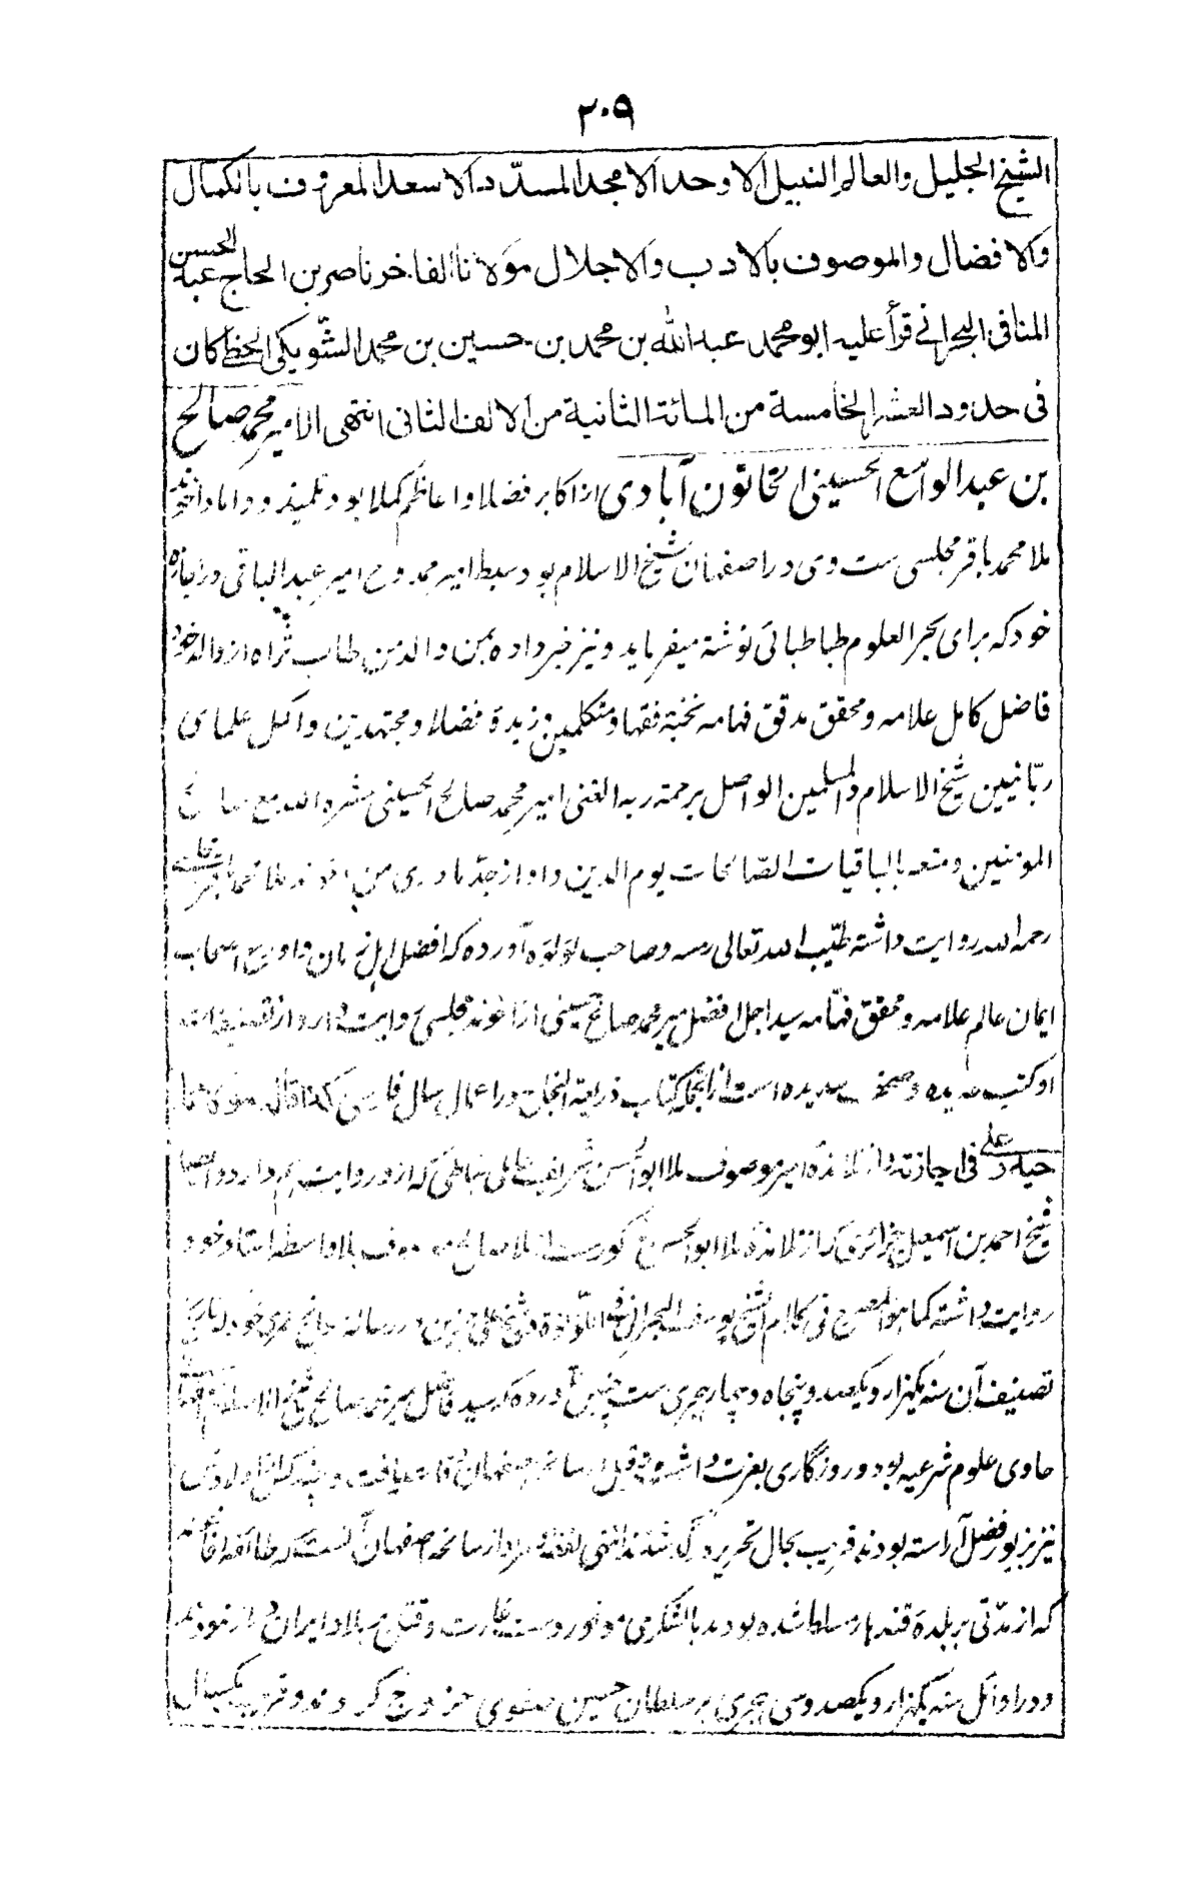 ۲۰۹
الشیخ الجلیل والعالم النبیل الاوحد الامجد المسدد الاسعد المعروف بالکمال
والافضال والموصوف بالادب والاجلال مولانا الفاخر ناصر بن الحاج عبد الحسین
المنافی البحرانی قرأ علیه ابو محمد عبد الله بن محمد بن حسین بن محمد الشویکی الخطی کان
فی حدود العشر الخامسة من المائة الثانیة من الالف الثانی انتهی الامیر محمد صالح
بن عبد الواسع الحسینی الخاتون آبادی از اکابر فضلا و اعاظم کملا بود تلمیذ و داماد آخوند
ملا محمد باقر مجلسی ست وی در اصفهان شیخ الاسلام بود سبط امیر ممدوح امیر عبد الباقی در اجازه
خود که برای بحر العلوم طباطبائی نوشته میفرماید و نیز خبر داده بمن والد من طاب ثراه از والد خود
فاضل کامل علامه و محقق مدقق فهامه نخبة فقها و متکلمین و زبدة فضلا و مجتهدین و اکمل علمای
ربانیین شیخ الاسلام والمسلمین الواصل برحمة ربه الغنی امیر محمد صالح الحسینی حشره الله مع
المؤمنین و متعه بالباقیات الصالحات یوم الدین و او از جد مادری من آخوند ملا محمد باقر
رحمه الله روایت داشته طیب الله تعالی رمسه و صاحب لؤلؤه آورده که افضل اهل زمان و اورع اصحاب
ایمان عالم علامه و محقق فهامه سید اجل افضل میر محمد صالح حسینی از آخوند مجلسی روایت دارد و از تصنیفات
او کتب عدیده و صحف سدیده است از انجمله کتاب ذریعة النجاح در اعمال سال فارسی کذا قال مولانا
حیدر علی فی اجازته و از تلامذه امیر موصوف ملا ابو الحسن شریف عاملی نباطی که ازو روایت هم دارد و ایضا
شیخ احمد بن اسمعیل جزائری که از تلامذه ملا ابو الحسن مذکورست از ملا صالح موصوف بلا واسطه استاد خود
روایت داشته کما هو المصرح فی کلام الشیخ یوسف البحرانی فی اللؤلؤة و شیخ علی حزین در رساله سوانح عمری خود که تاریخ
تصنیف آن سنه یکهزار و یکصد و پنجاه و چار هجری ست چنین آورده که سید فاضل میر محمد صالح شیخ الاسلام
حاوی علوم شرعیه بود و روزگاری بعزت داشت قبل از سانحه اصفهان وفات یافت و چند کس از اولادش
نیز بزیور فضل آراسته بودند قریب بحال تحریر درگذشتند انتهی لفظه مراد از سانحه اصفهان آنست که طائفه افاغنه
که از مدتی بر بلده قندهار مسلط شده بودند با لشکری موفور دست غارت و قتل ببلاد ایران دراز نمودند
و در اوائل سنه یکهزار و یکصد و سی هجری بر سلطان حسین صفوی خروج کردند و قریب یکسال